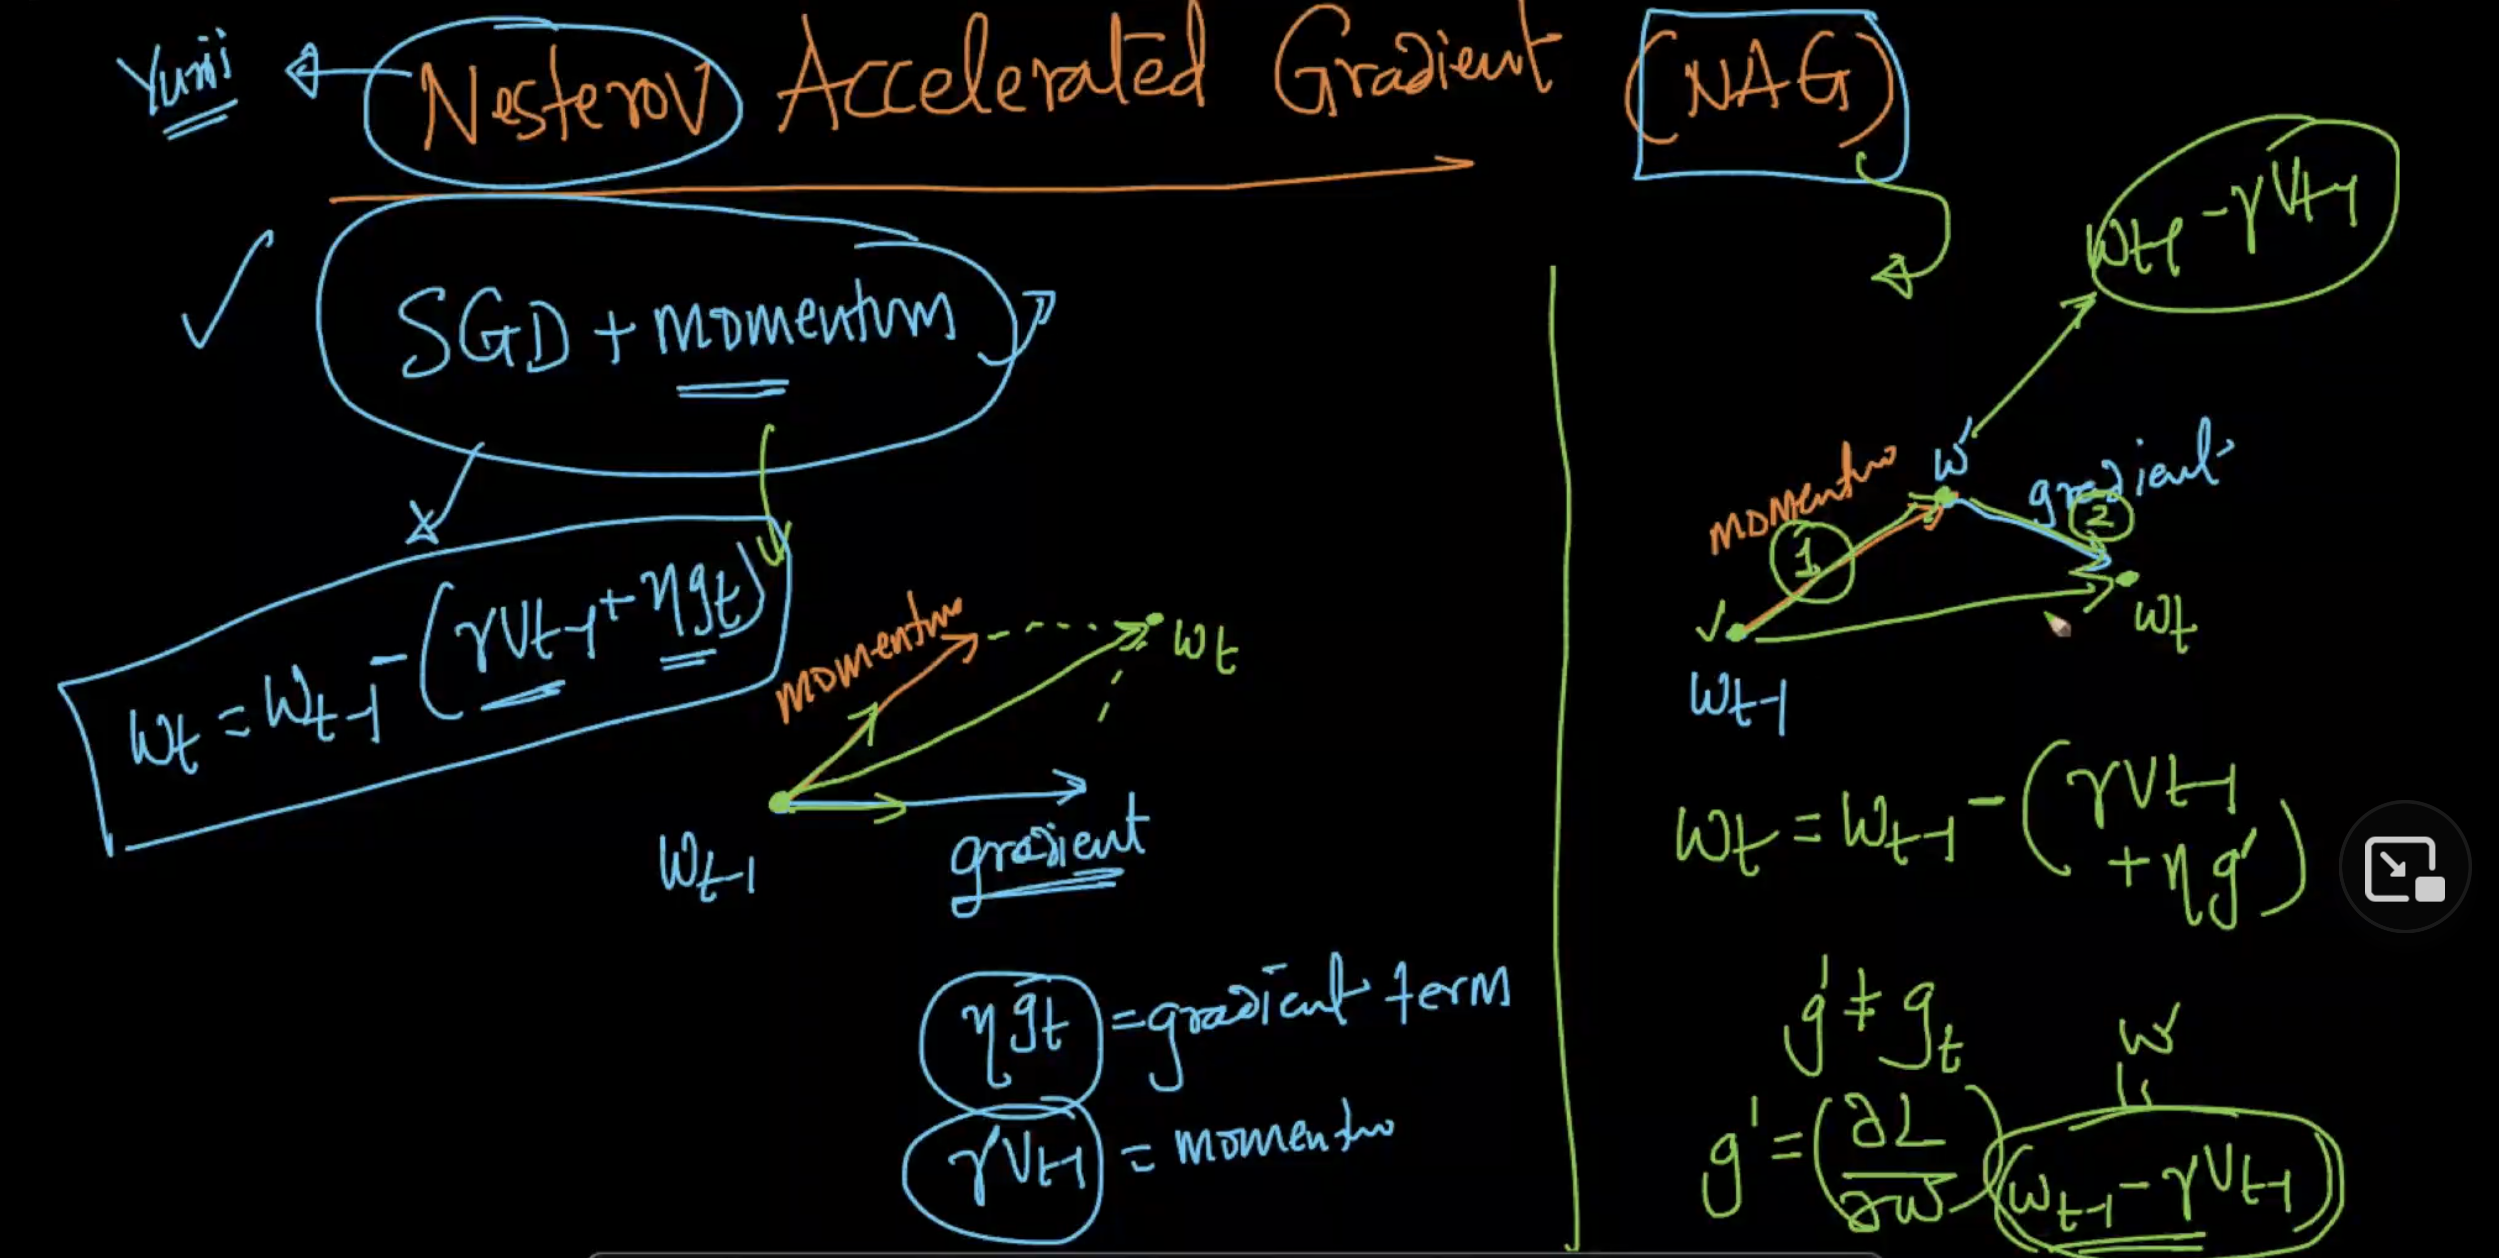 Yuri ← Nesterov Accelerated Gradient (NAG)
SGD + momentum
wt = wt-1 - (γVt-1 + ηgt)
momentum
wt
wt-1
gradient
ηgt = gradient term
γVt-1 = momentum
wt-1 - γVt-1
w'
momentum
1
gradient
2
wt-1
wt
wt = wt-1 - (γVt-1
+ ηg')
g' ≠ gt
w'
g' = (∂L/∂w)(wt-1 - γVt-1)